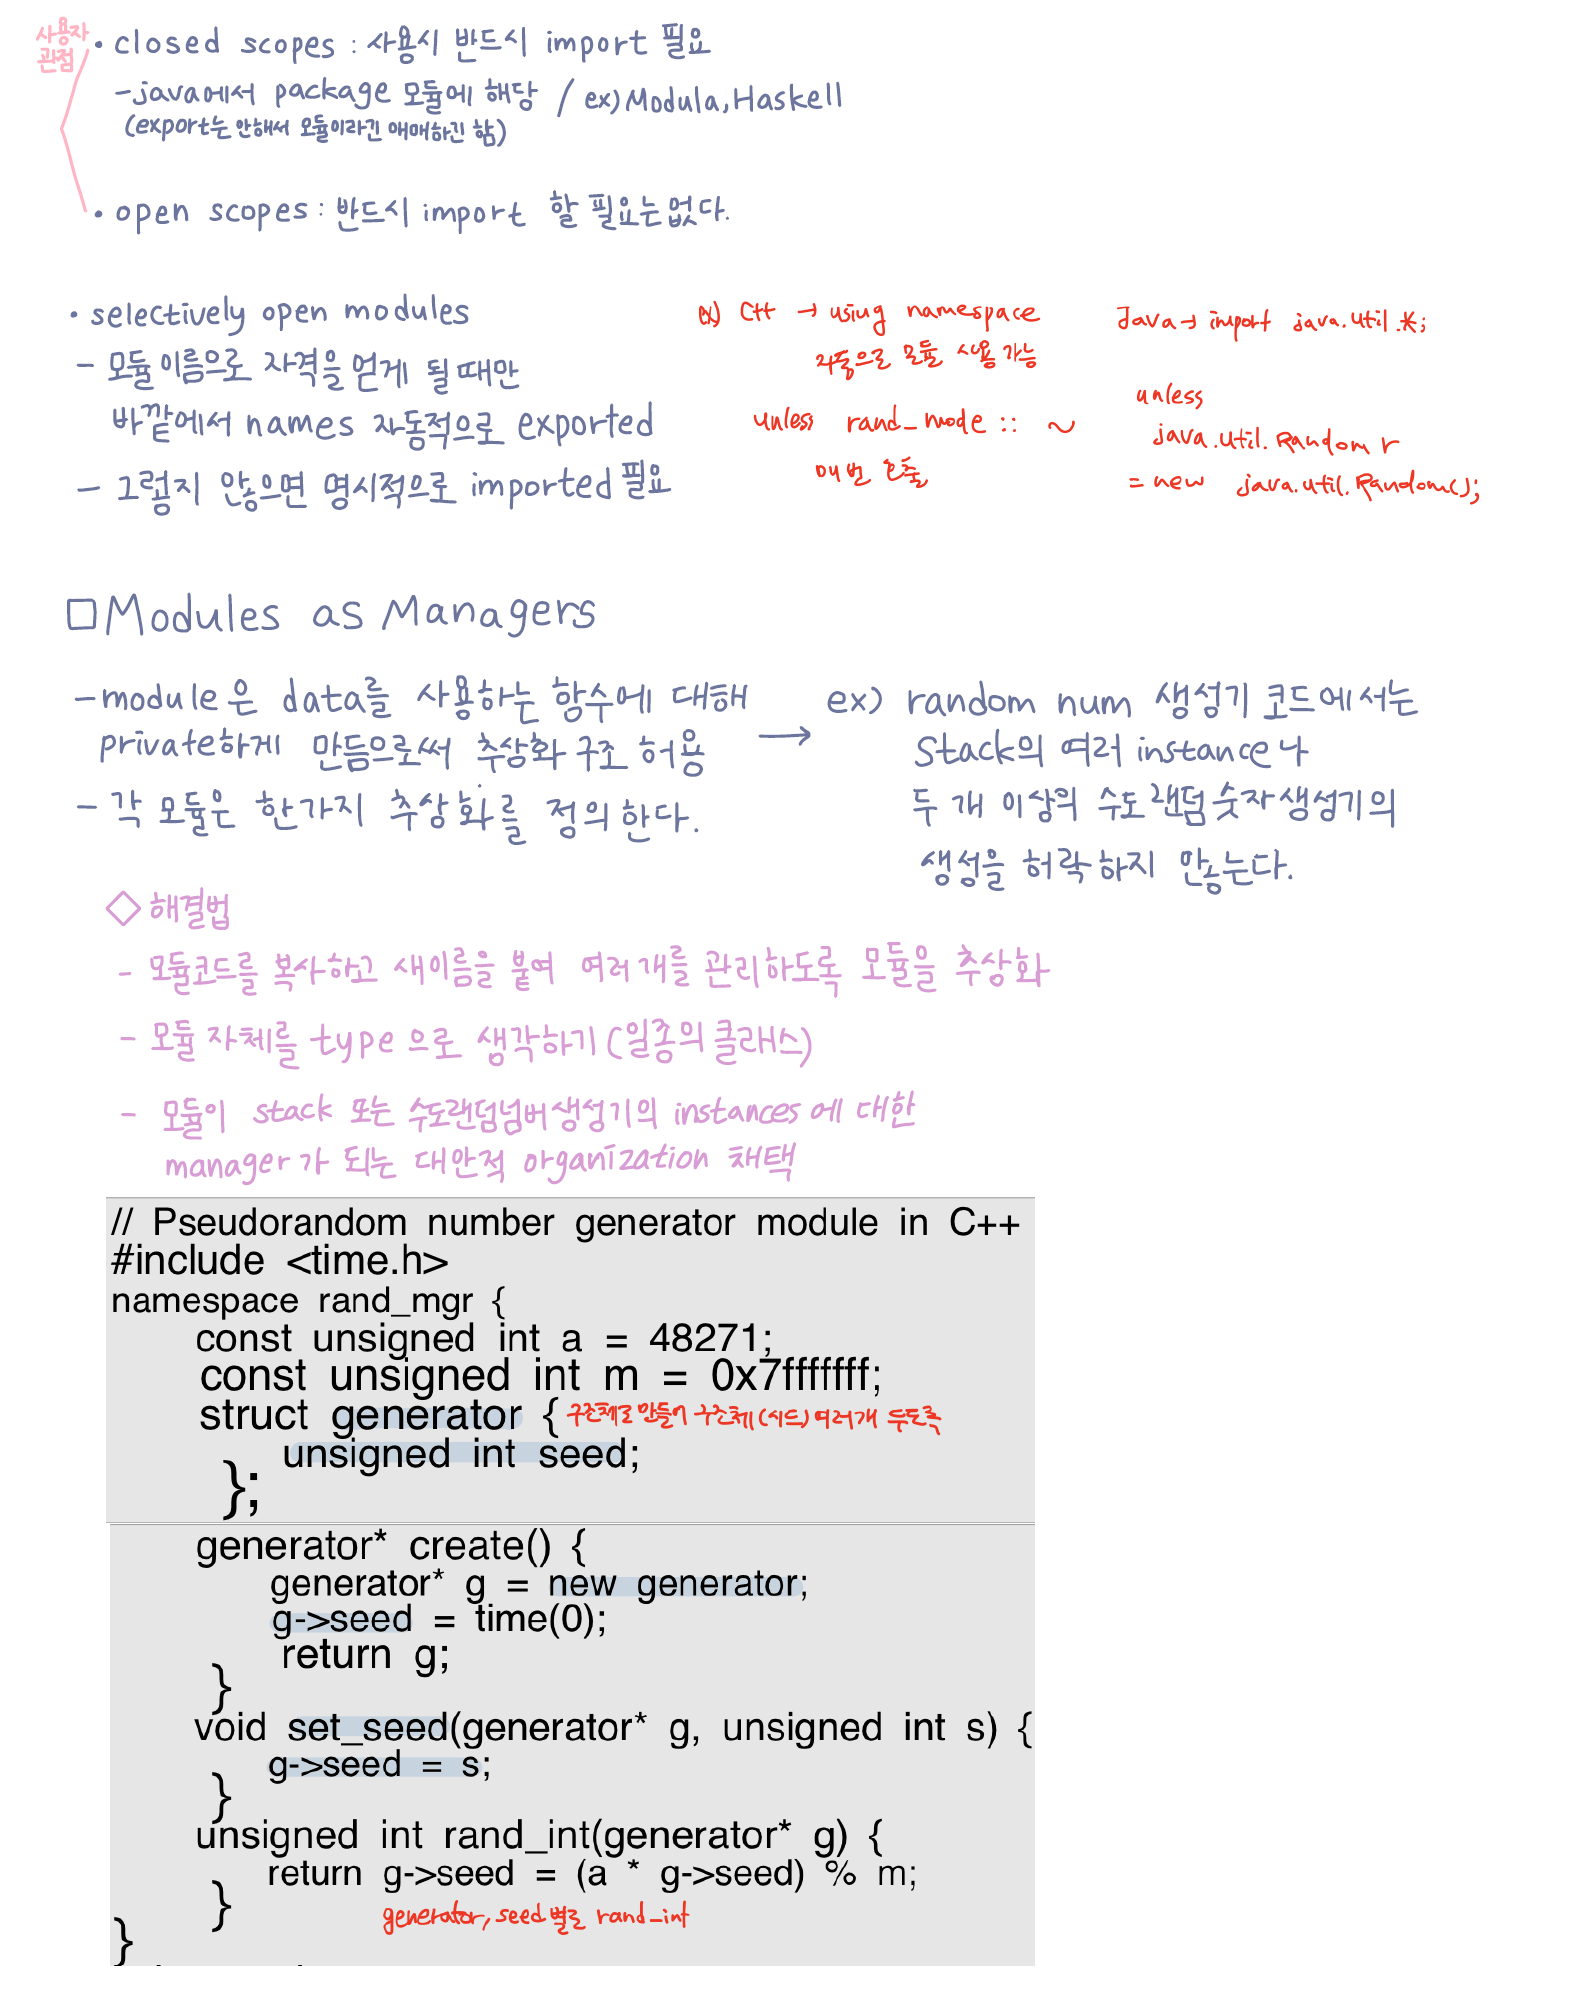 사용자
관점
• closed scopes : 사용시 반드시 import 필요
- java에서 package 모듈에 해당 / ex) Modula, Haskell
(export는 안해서 모듈이라긴 애매하긴 함)
• open scopes : 반드시 import 할 필요는 없다.
• selectively open modules
- 모듈 이름으로 자격을 얻게 될 때만
바깥에서 names 자동적으로 exported
- 그렇지 않으면 명시적으로 imported 필요
ex) C++ → using namespace
자동으로 모듈 사용 가능
unless rand_mode :: ~
매번 호출
Java → import java.util.*;
unless
java.util.Random r
= new java.util.Random();
□ Modules as Managers
- module은 data를 사용하는 함수에 대해
private하게 만듬으로써 추상화 구조 허용
- 각 모듈은 한가지 추상화를 정의한다.
→ ex) random num 생성기 코드에서는
Stack의 여러 instance나
두 개 이상의 수도랜덤 숫자생성기의
생성을 허락하지 않는다.
◇ 해결법
- 모듈코드를 복사하고 새이름을 붙여 여러개를 관리하도록 모듈을 추상화
- 모듈 자체를 type 으로 생각하기 (일종의 클래스)
- 모듈이 stack 또는 수도랜덤넘버생성기의 instances 에 대한
manager가 되는 대안적 organization 채택
// Pseudorandom number generator module in C++
#include <time.h>
namespace rand_mgr {
const unsigned int a = 48271;
const unsigned int m = 0x7fffffff;
struct generator { 구조체로 만들어 구조체(시드) 여러개 두도록
unsigned int seed;
};
generator* create() {
generator* g = new generator;
g->seed = time(0);
return g;
}
void set_seed(generator* g, unsigned int s) {
g->seed = s;
}
unsigned int rand_int(generator* g) {
return g->seed = (a * g->seed) % m;
}
generator, seed 별로 rand_int
}